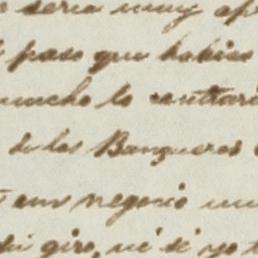 seria muy
paso que habias
mucho lo contrari
de los Banqueros
un negocio
giro, ni si yo